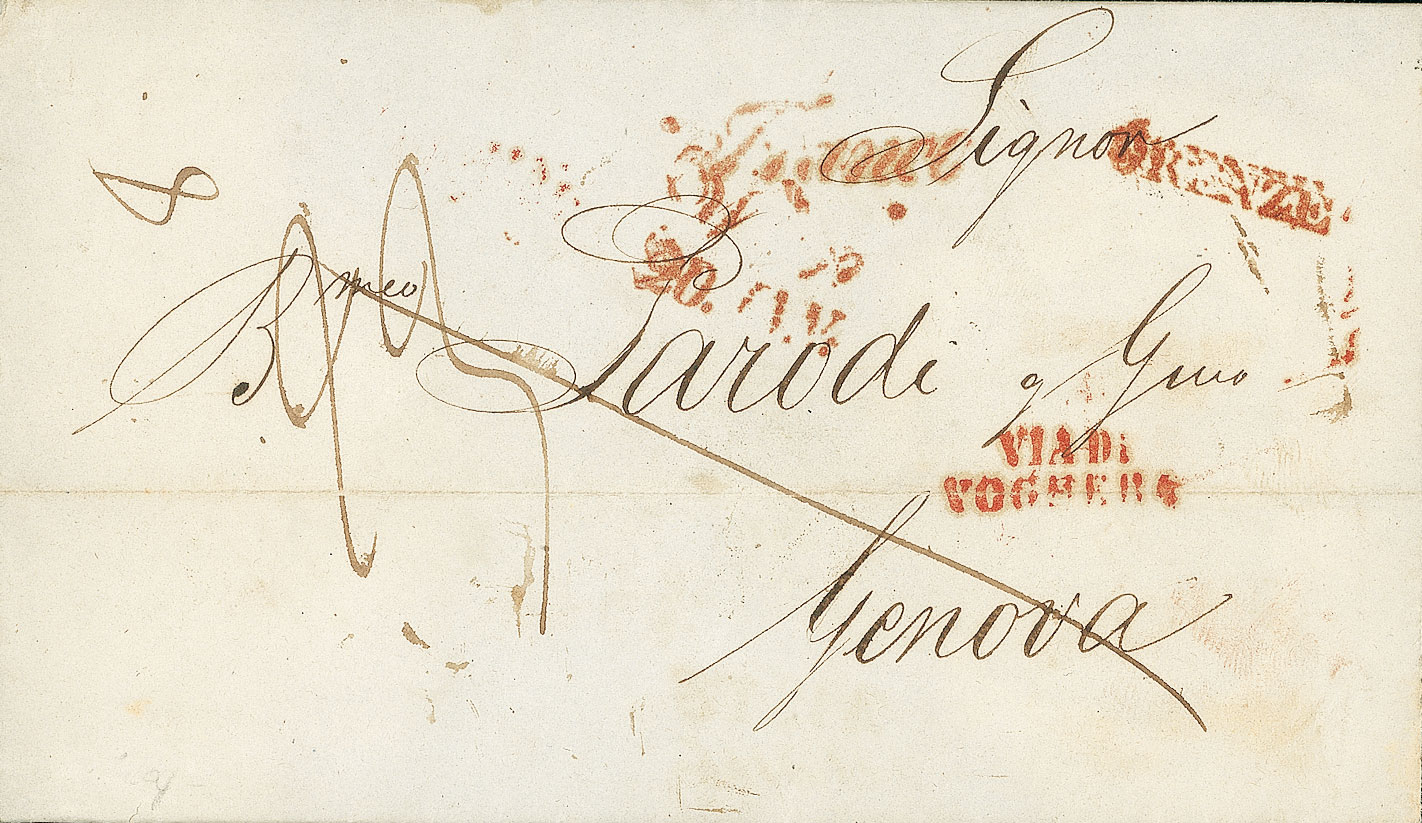 Signor
FIRENZE
8
20.
Bmeo Parodi q Gmo
VIA DI
VOGHERA
Genova